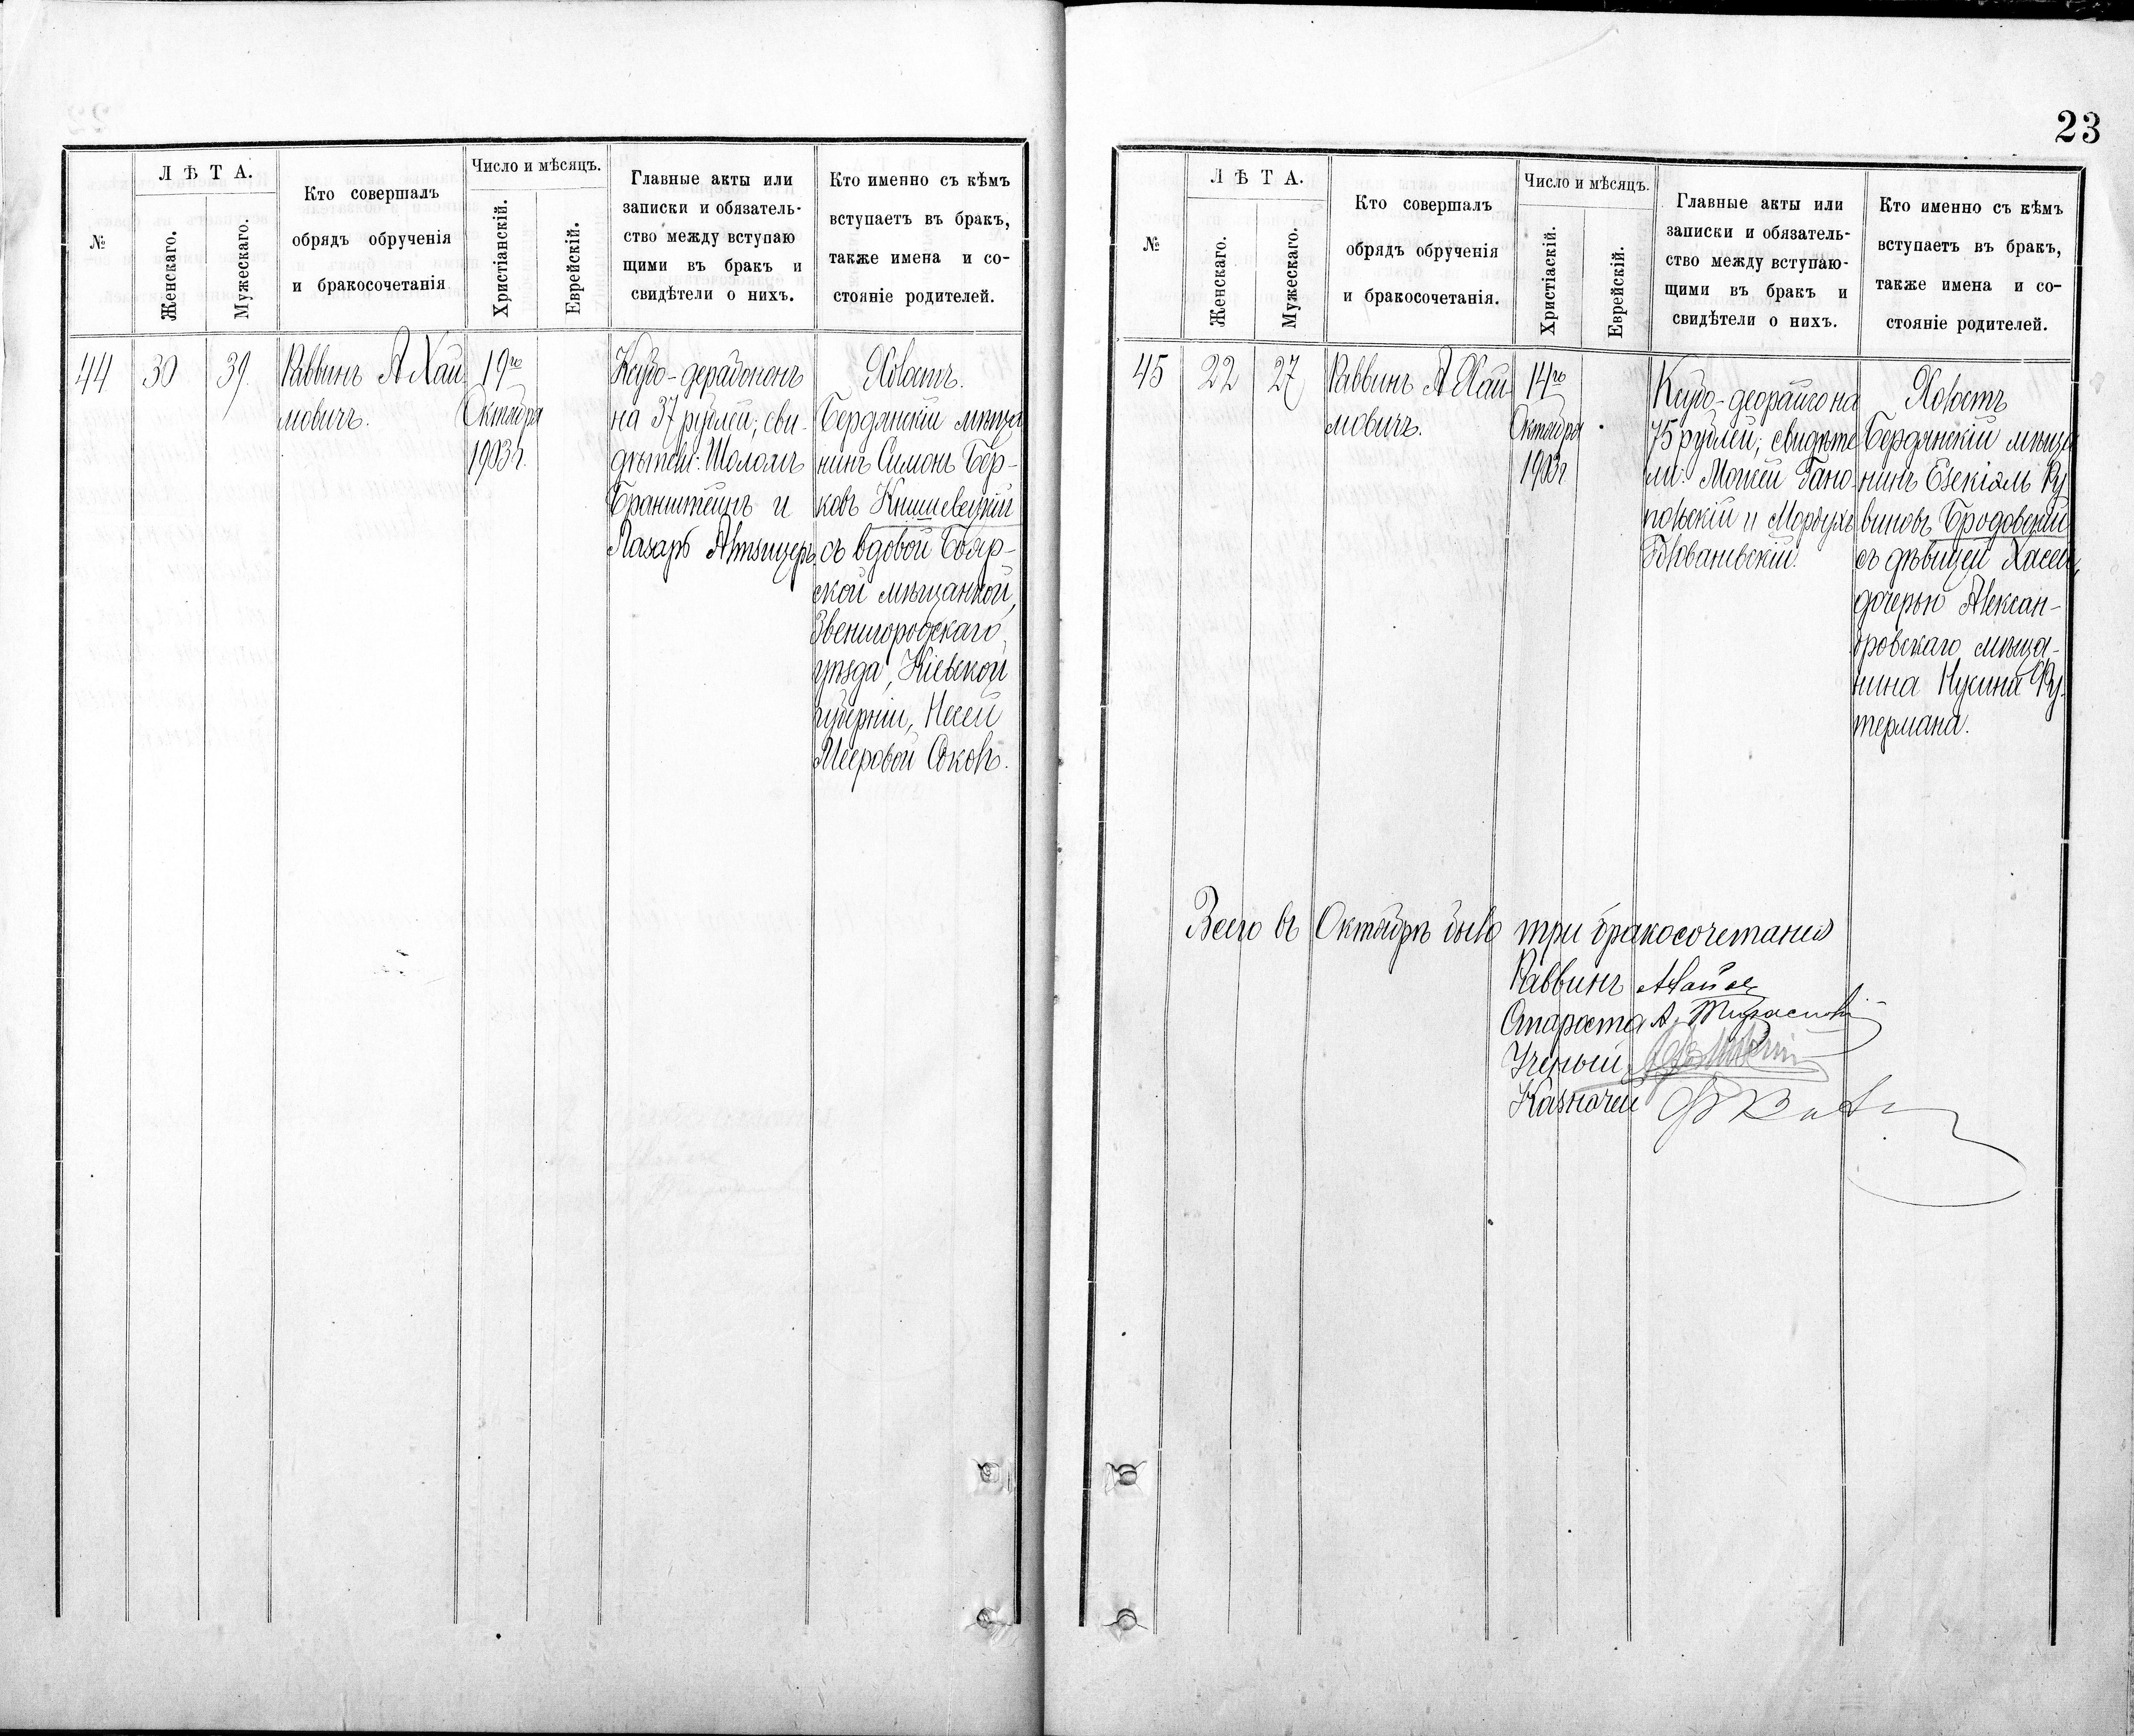 №
Л Ѣ Т А.
Женскаго.
Мужескаго.
Кто совершалъ
обрядъ обрученія
и бракосочетанія
Число и мѣсяцъ.
Христіанскій.
Еврейскій.
Главные акты или
записки и обязатель-
ство между вступаю
щими въ бракъ и
свидѣтели о нихъ.
Кто именно съ кѣмъ
вступаетъ въ бракъ,
также имена и со-
стояніе родителей.
44
30
39.
Раввинъ А Хаи
мовичъ.
19го
Октября
1903 г.
Ксубо-дерабононъ
на 37 рублей; сви-
дѣтели: Шоломъ
Бранштейнъ и
Лазарь Альтзицеръ
Холостъ.
Бердянскій мѣща
нинъ Симонъ Бер-
ковъ Книшевецкій
съ вдовой Бояр-
ской мѣщанкой,
Звенигородскаго
уѣзда, Кіевской
губерніи, Несей
Мееровой Соколъ.
23
№
Л Ѣ Т А.
Женскаго.
Мужескаго.
Кто совершалъ
обрядъ обрученія
и бракосочетанія.
Число и мѣсяцъ.
Христіаскій.
Еврейскій.
Главные акты или
записки и обязатель-
ство между вступаю-
щими въ бракъ и
свидѣтели о нихъ.
Кто именно съ кѣмъ
вступаетъ въ бракъ,
также имена и со-
стояніе родителей.
45
22
27
Раввинъ А Хаи
мовичъ.
14го
Октября
1903 г
Ксубо-деорайсо на
75 рублей; свидѣте
ли: Мошей Гано-
польскій и Мордухъ
Голованевскій.
Холостъ
Бердянскій мѣща
нинъ Езекіаль Ру
виновъ Бродовскій
съ дѣвицей Хасей,
дочерью Алексан-
дровскаго мѣща-
нина Нусина Ру-
термана.
Всего въ Октябрѣ было три бракосочетанія
Раввинъ
Староста А.
Ученый
Казначей